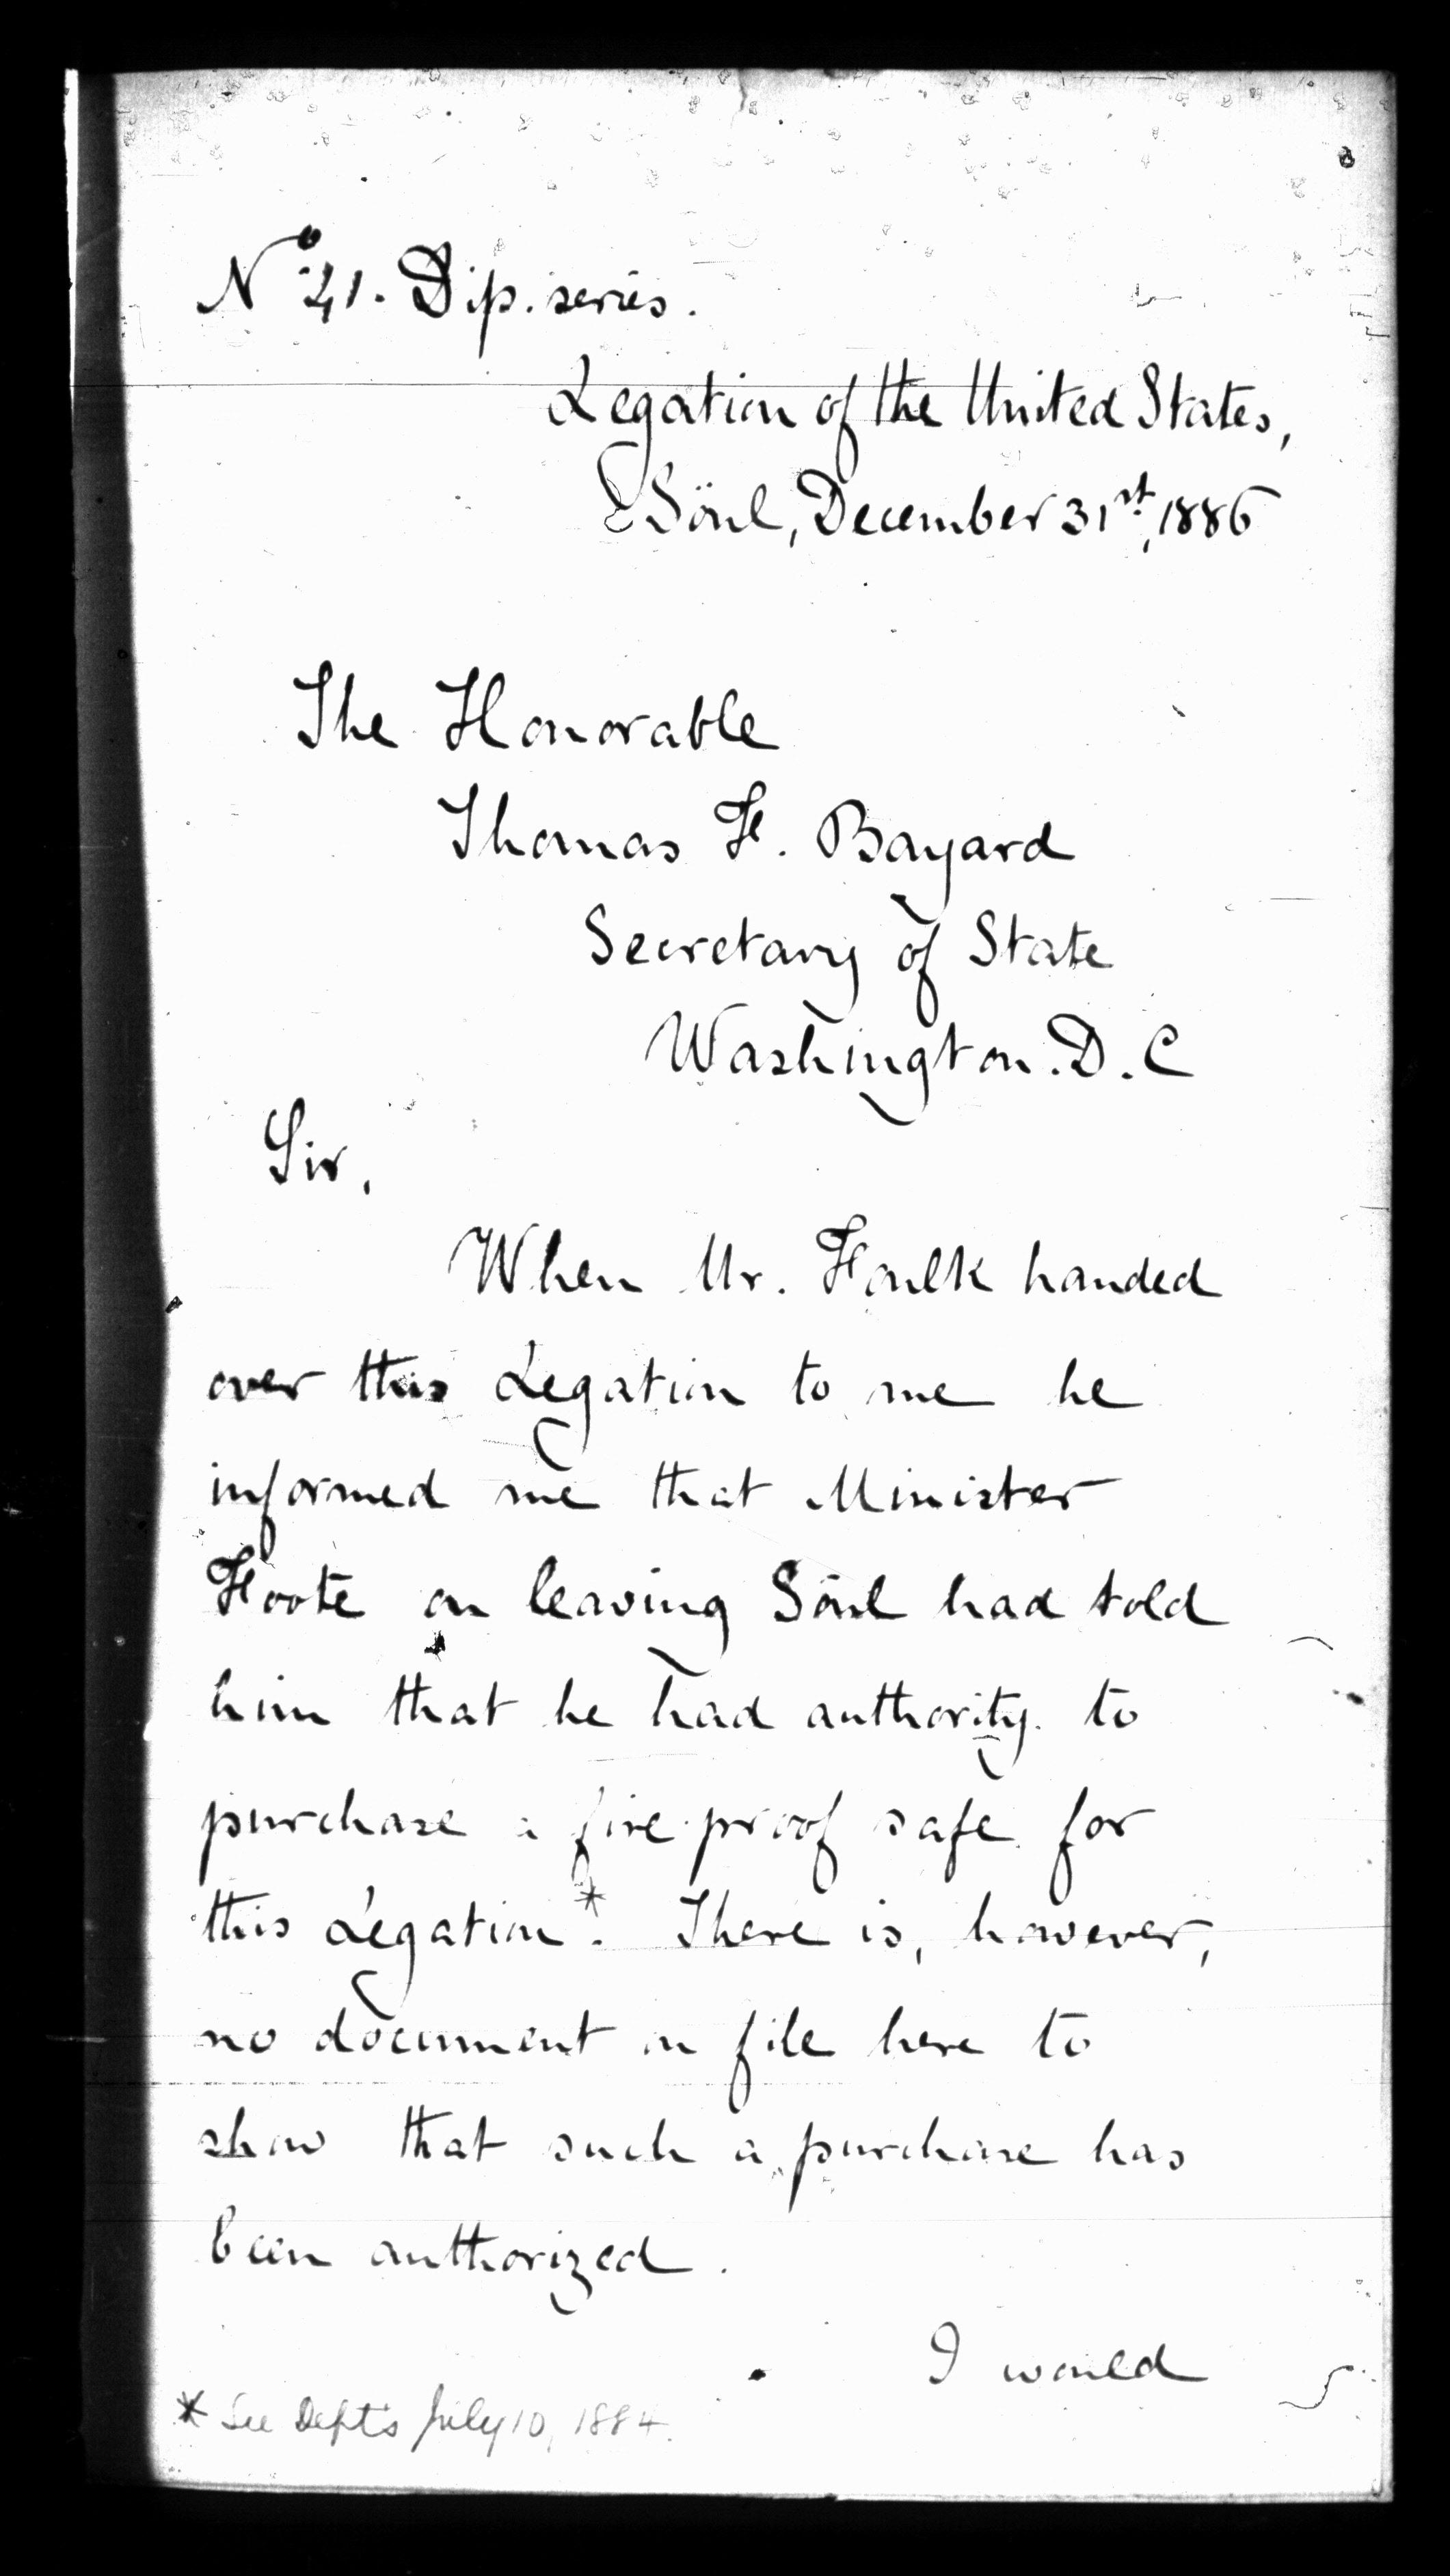 Nº 21. Dip. series.
Legation of the United States,
Söul, December 31st, 1886
The Honorable
Thomas F. Bayard
Secretary of State
Washington. D. C
Sir,
When Mr. Foulk handed
over this Legation to me he
informed me that Minister
Foote on leaving Söul had told
him that he had authority to
purchase a fire-proof safe for
this Legation*. There is, however,
no document on file here to
show that such a purchase has
been authorized.
I would
* See Dept's July 10, 1884.